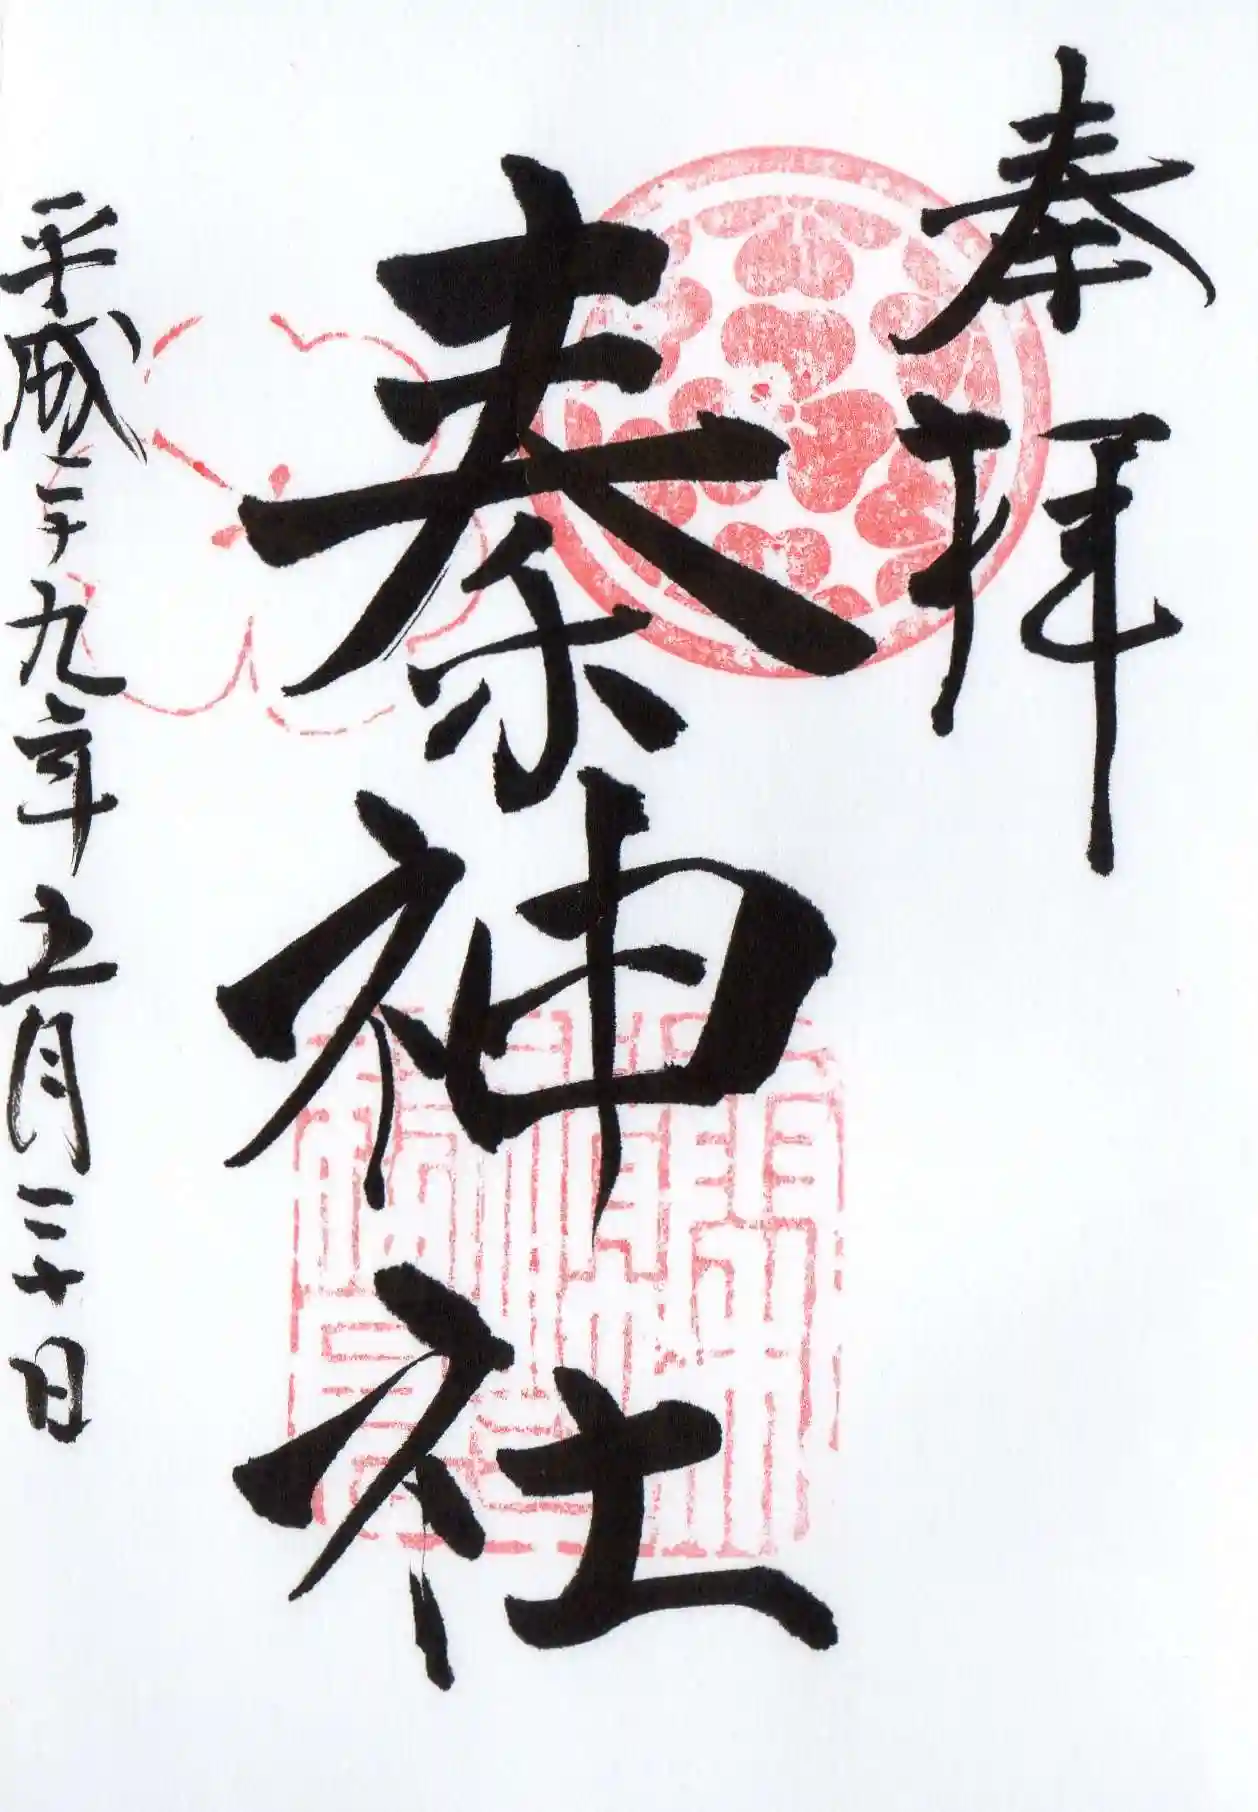 奉拝
秦神社
平成二十九年五月三十日